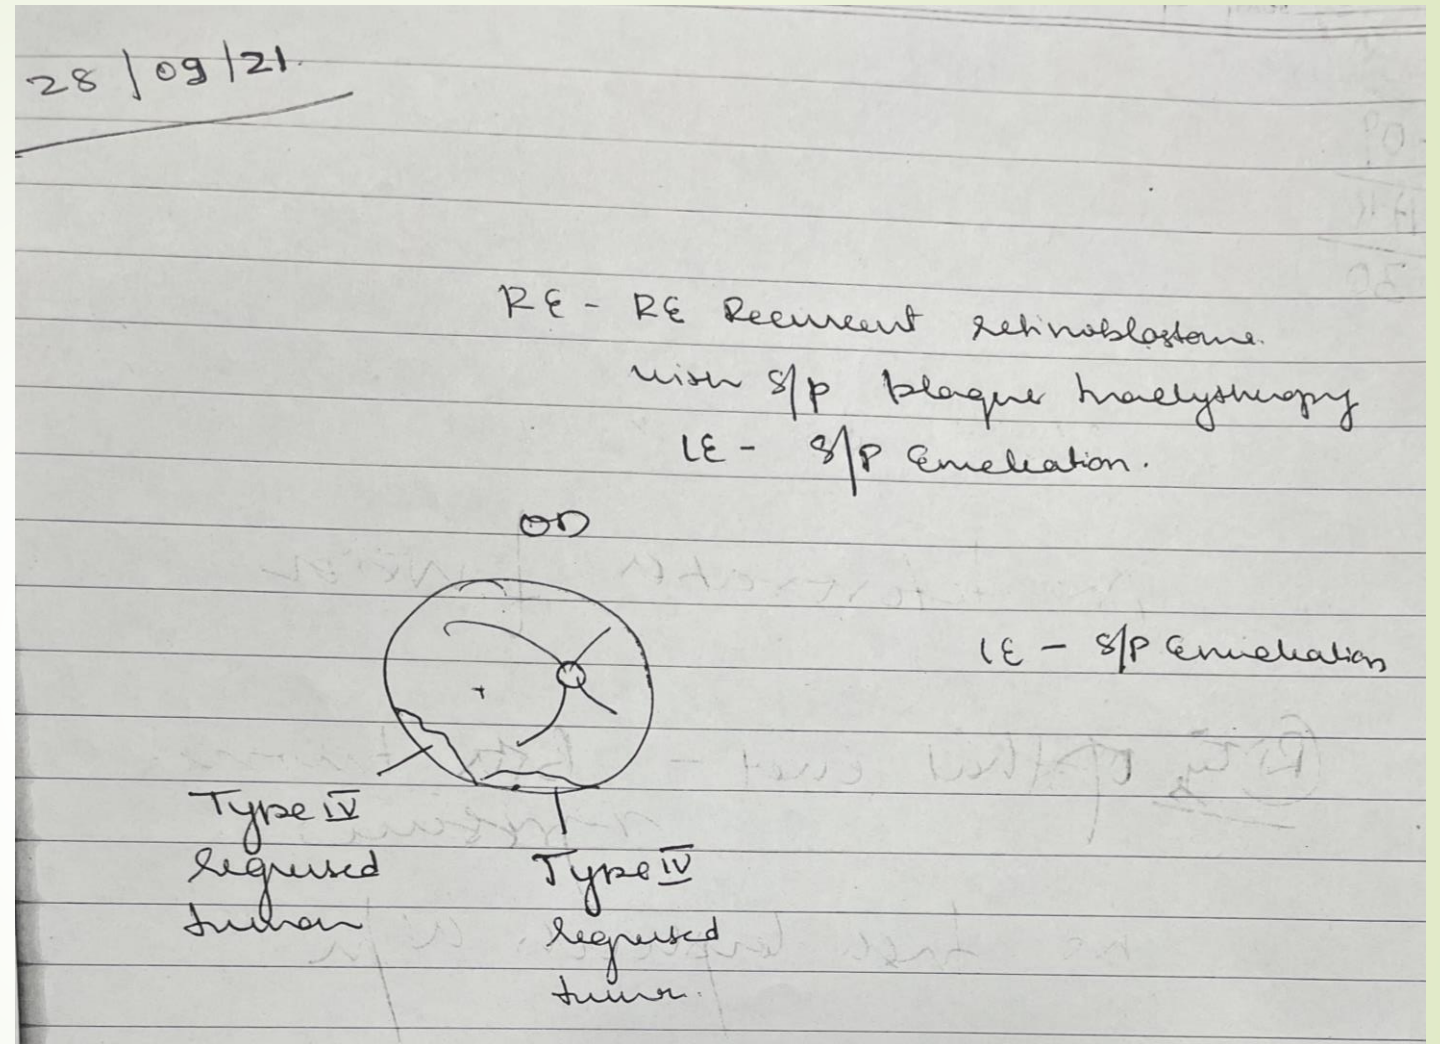 28/09/21.
RE - RE Recurrent retinoblastoma.
with S/P plaque brachytherapy
LE - S/P Enucleation.
OD
LE - S/P Enucleation
Type IV
regressed
tumor
Type IV
regressed
tumor.